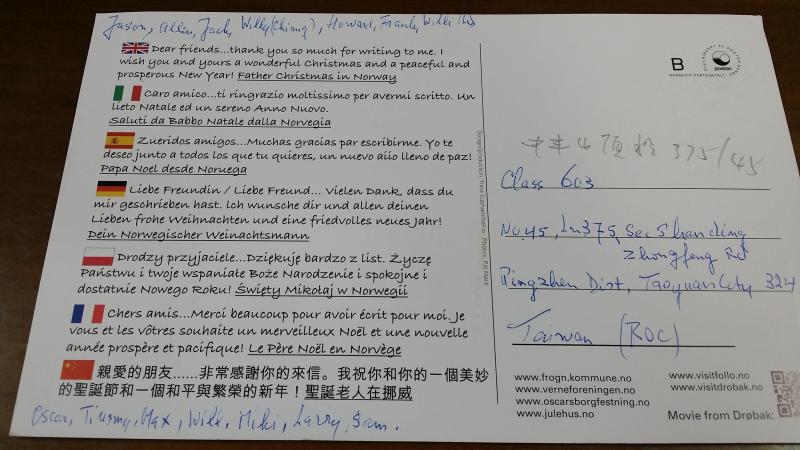 Jason, Allen, Jack, Willy (Chiang), Howard, Frank,
Dear friends...thank you so much for writing to me. I
wish you and yours a wonderful Christmas and a peaceful and
prosperous New Year! Father Christmas in Norway
Caro amico...ti ringrazio moltissimo per avermi scritto. Un
lieto Natale ed un sereno Anno Nuovo.
Saluti da Babbo Natale dalla Norvegia
Zueridos amigos...Muchas gracias par escribirme. Yo te
deseo junto a todos los que tu quieres, un nuevo aiio lleno de paz!
Papa Noel desde Noruega
Liebe Freundin / Liebe Freund... Vielen Dank, dass du
mir geschrieben hast. Ich wunsche dir und allen deinen
Lieben frohe Weihnachten und eine friedvolles neues Jahr!
Dein Norwegischer Weinachtsmann
Drodzy przyjaciele...Dziękuję bardzo z list. Życzę
Państwu i twoje wspaniałe Boże Narodzenie i spokojne i
dostatnie Nowego Roku! Święty Mikołaj w Norwegii
Chers amis...Merci beaucoup pour avoir écrit pour moi. Je
vous et les vôtres souhaite un merveilleux Noël et une nouvelle
année prospère et pacifique! Le Père Noël en Norvège
親愛的朋友......非常感謝你的來信。我祝你和你的一個美妙
的聖誕節和一個和平與繁榮的新年！聖誕老人在挪威
Oscar, Timmy, Max, Will, Miki, Larry, Sam.
B
posten
NORGE P.P. PORTO BETALT
375/45
Class 603
No.45, Ln375, Sec Shanding
Zhongfeng Rd
Pingzhen Dist, Taoyuan City 324
Taiwan (ROC)
www.frogn.kommune.no
www.verneforeningen.no
www.oscarsborgfestning.no
www.julehus.no
www.visitfollo.no
www.visitdrobak.no
Movie from Drøbak: